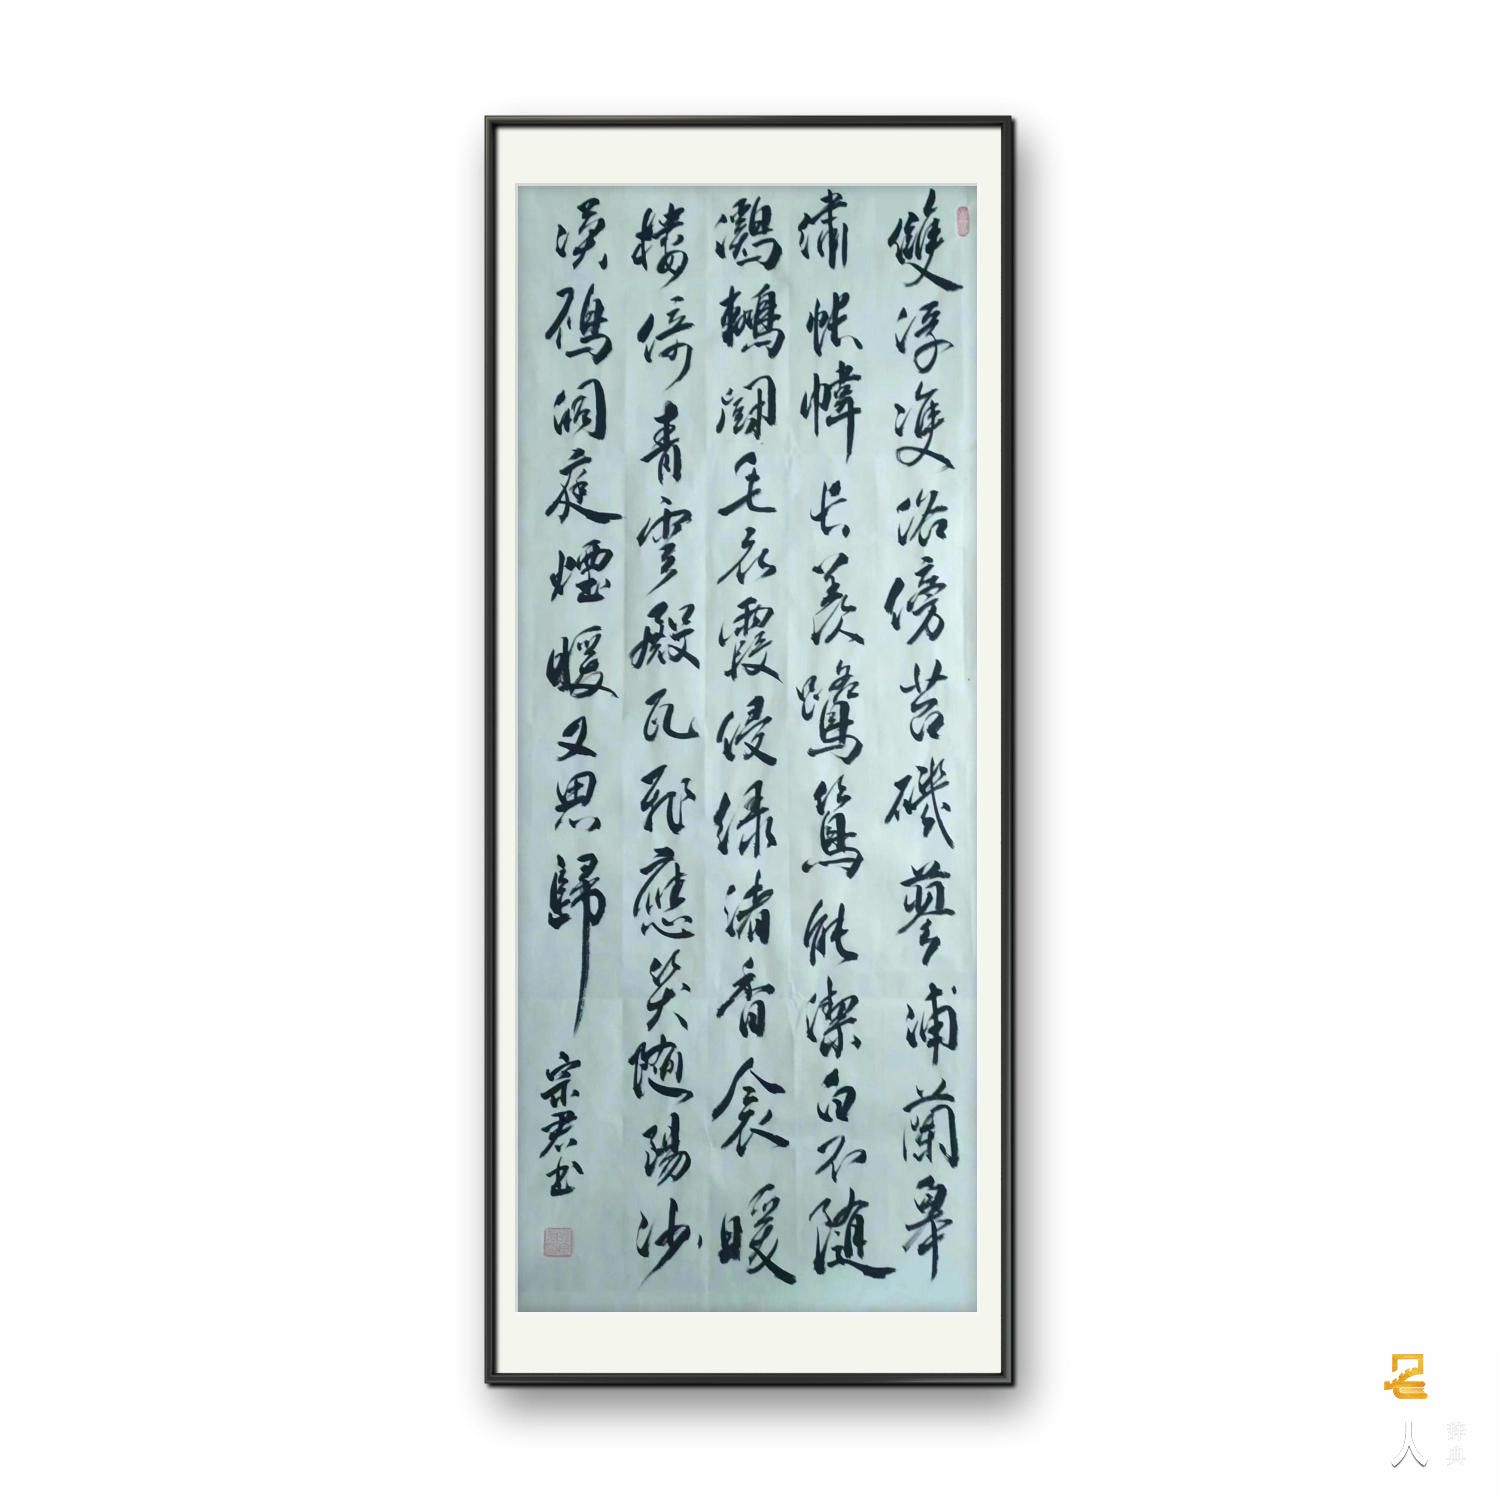 雙浮雙浴傍苔磯蓼浦蘭皋
繡帳幃長羨鷺鴛能潔白不隨
鸂鶒鬭毛衣霞侵綠渚香衾暖
樓倚青雲殿瓦飛應笑隨陽沙
漠雁洞庭煙暖又思歸
宗君书
名
人
辞典